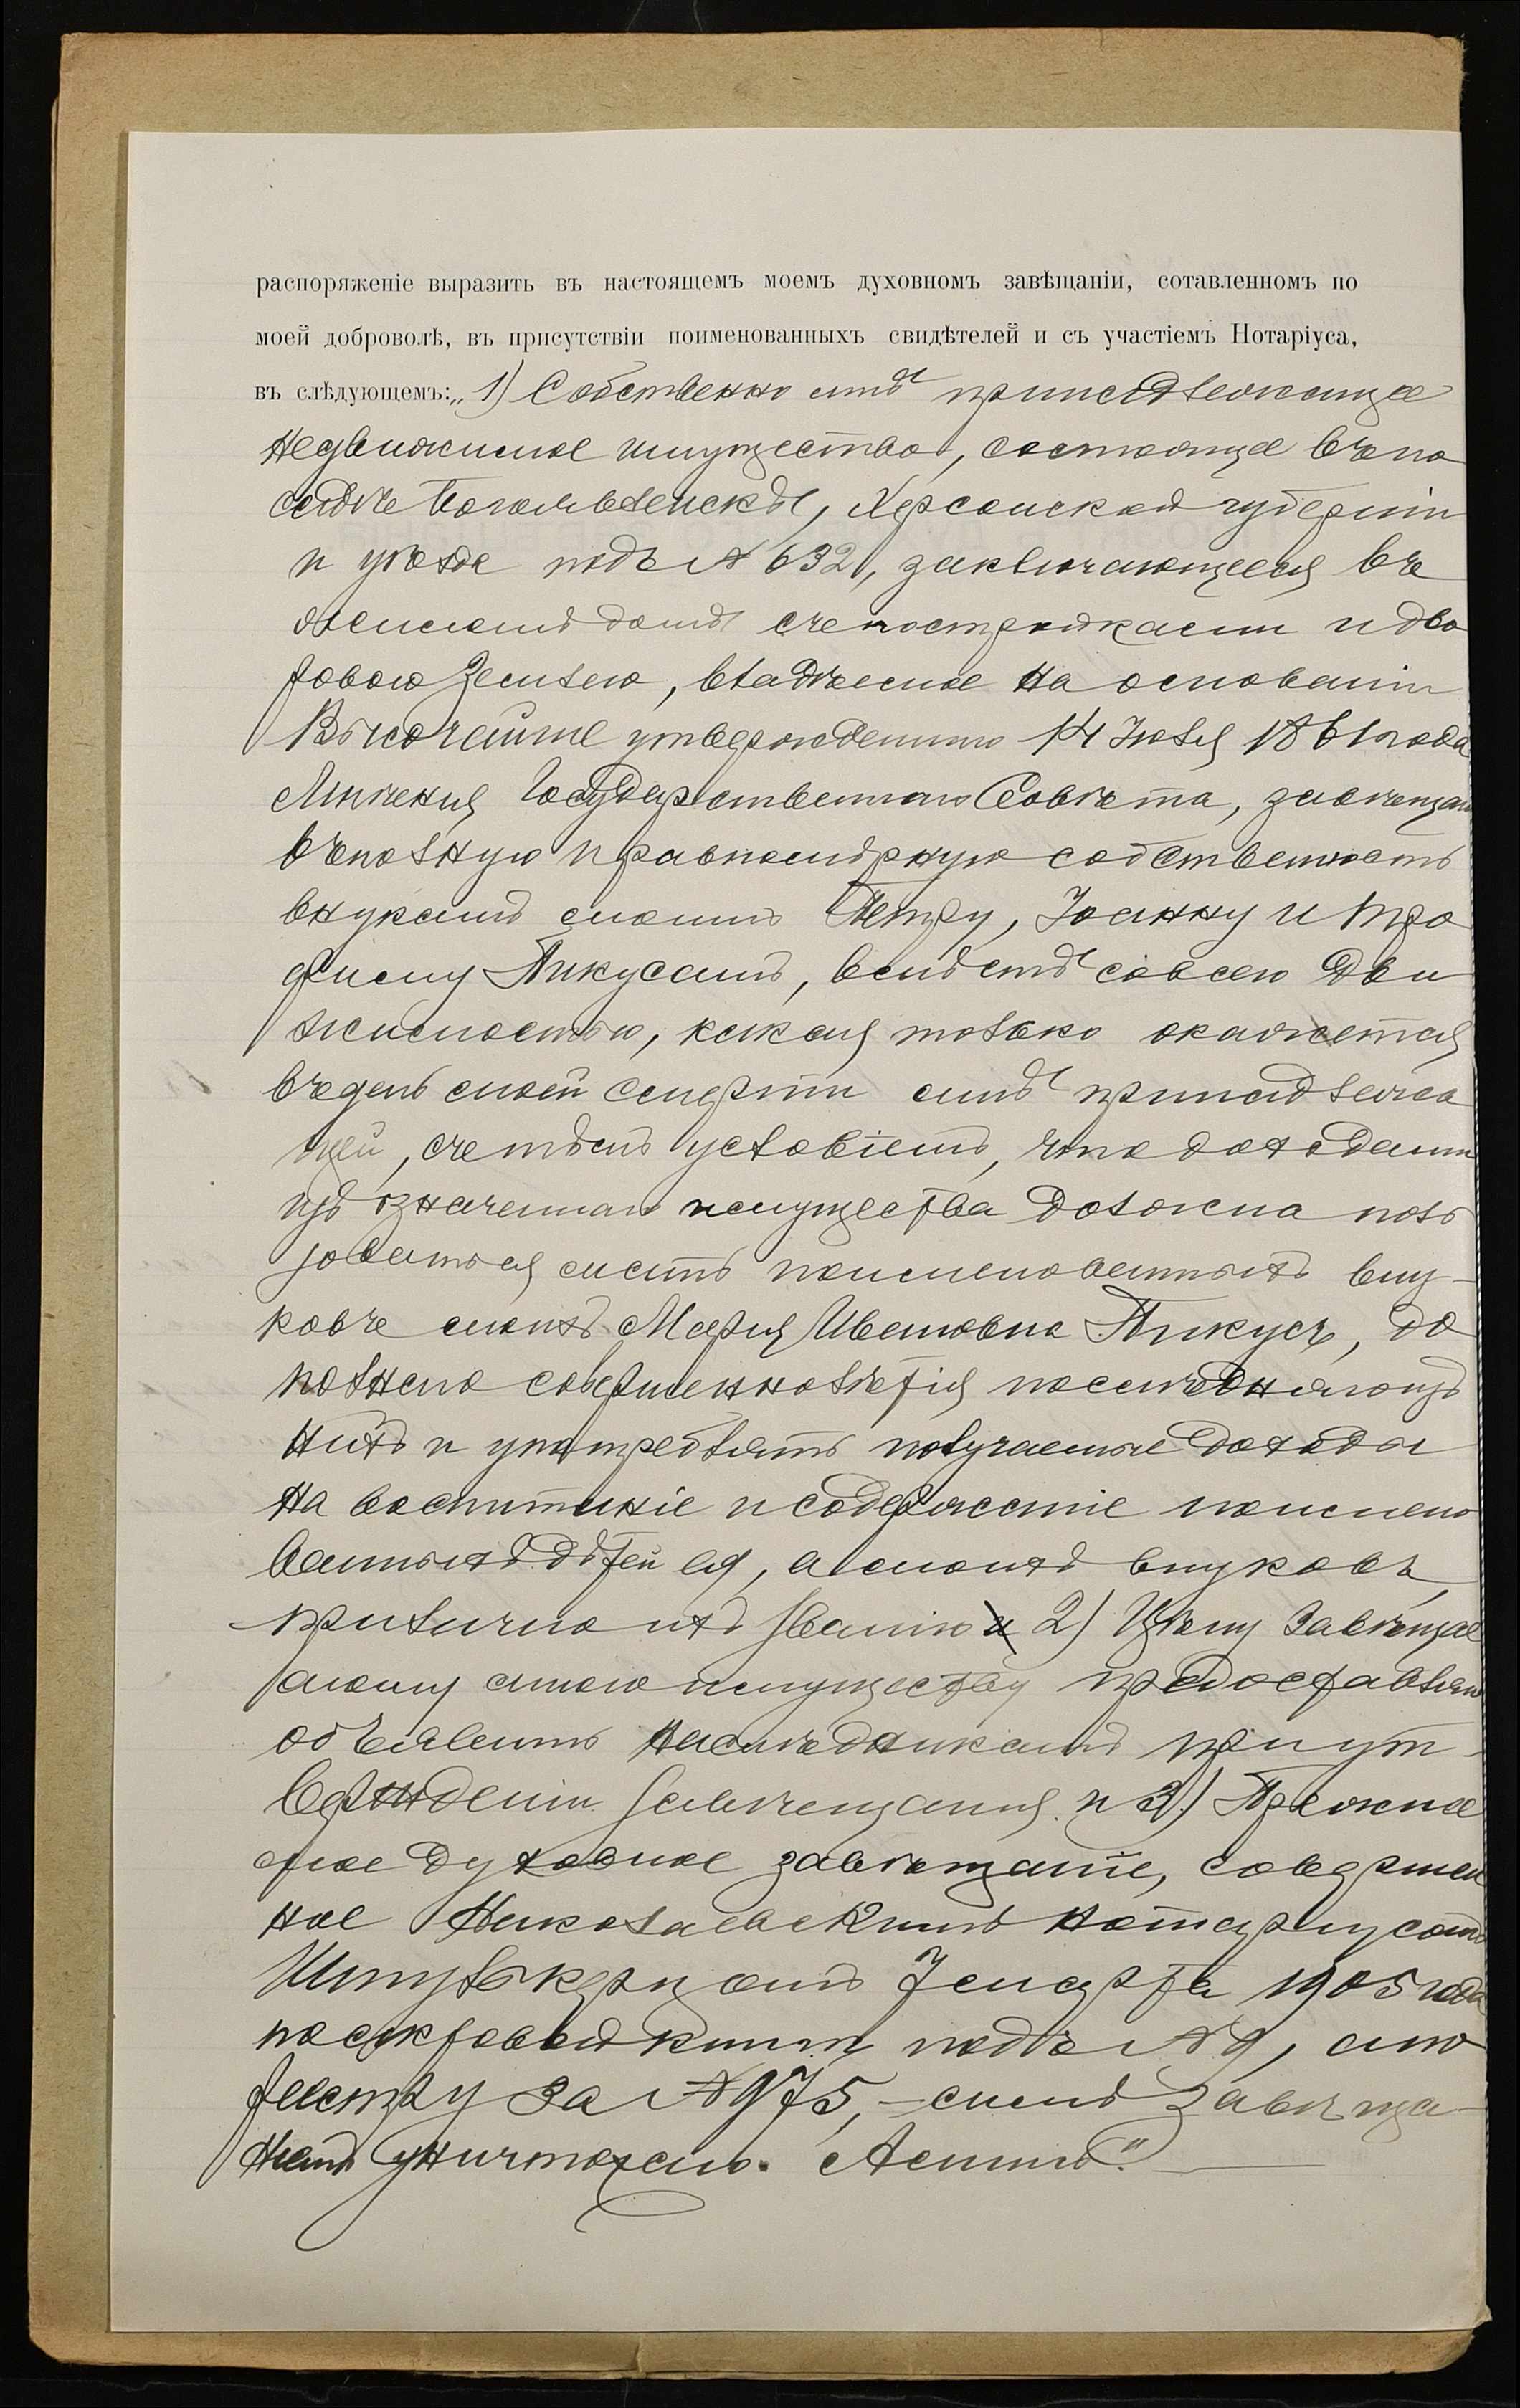 распоряженіе выразить въ настоящемъ моемъ духовномъ завѣщаніи, сотавленномъ по
моей доброволѣ, въ присутствіи поименованныхъ свидѣтелей и съ участіемъ Нотаріуса,
въ слѣдующемъ: „1) Собственно мнѣ принадлежащее
недвижимое имущество, состоящее въ по
садѣ Богоявленскѣ, Херсонской губерніи
и уѣзда подъ № 632, заключающееся въ
жиломъ домѣ съ постройками и дво
ровою землею, владѣемое на основаніи
Высочайше утвержденнаго 14 Іюля 1861 года
Мнѣнія Государственнаго Совѣта, завѣщаю
въ полную и равномѣрную собственность
внукамъ моимъ Петру, Іоанну и Тро
фиму Пикусамъ, вмѣстѣ со всею дви
жимостью, какая только окажется
въ день моей смерти мнѣ принадлежа
щей, съ тѣмъ условіемъ, что доходами
изъ означеннаго имущества должна поль
зоваться мать поименованныхъ вну-
ковъ моихъ Марія Ивановна Пикусъ, до
полнаго совершеннолѣтія послѣдняго изъ
нихъ и употреблять получаемые доходы
на воспитаніе и содержаніе поимено
ванныхъ дѣтей ея, а моихъ внуковъ,
прилично ихъ званію и 2) Цѣну завѣщае
мому мною имуществу предоставляю
объявить наслѣдникамъ при ут-
вержденіи завѣщанія и 3) Прежнее
мое духовное завѣщаніе, совершен
ное Николаевскимъ нотаріусомъ
Января 1905 года
по актовой книгѣ подъ № 9, а по
реестру за № 975, – симъ завѣща-
ніемъ уничтожаю. Аминь“.